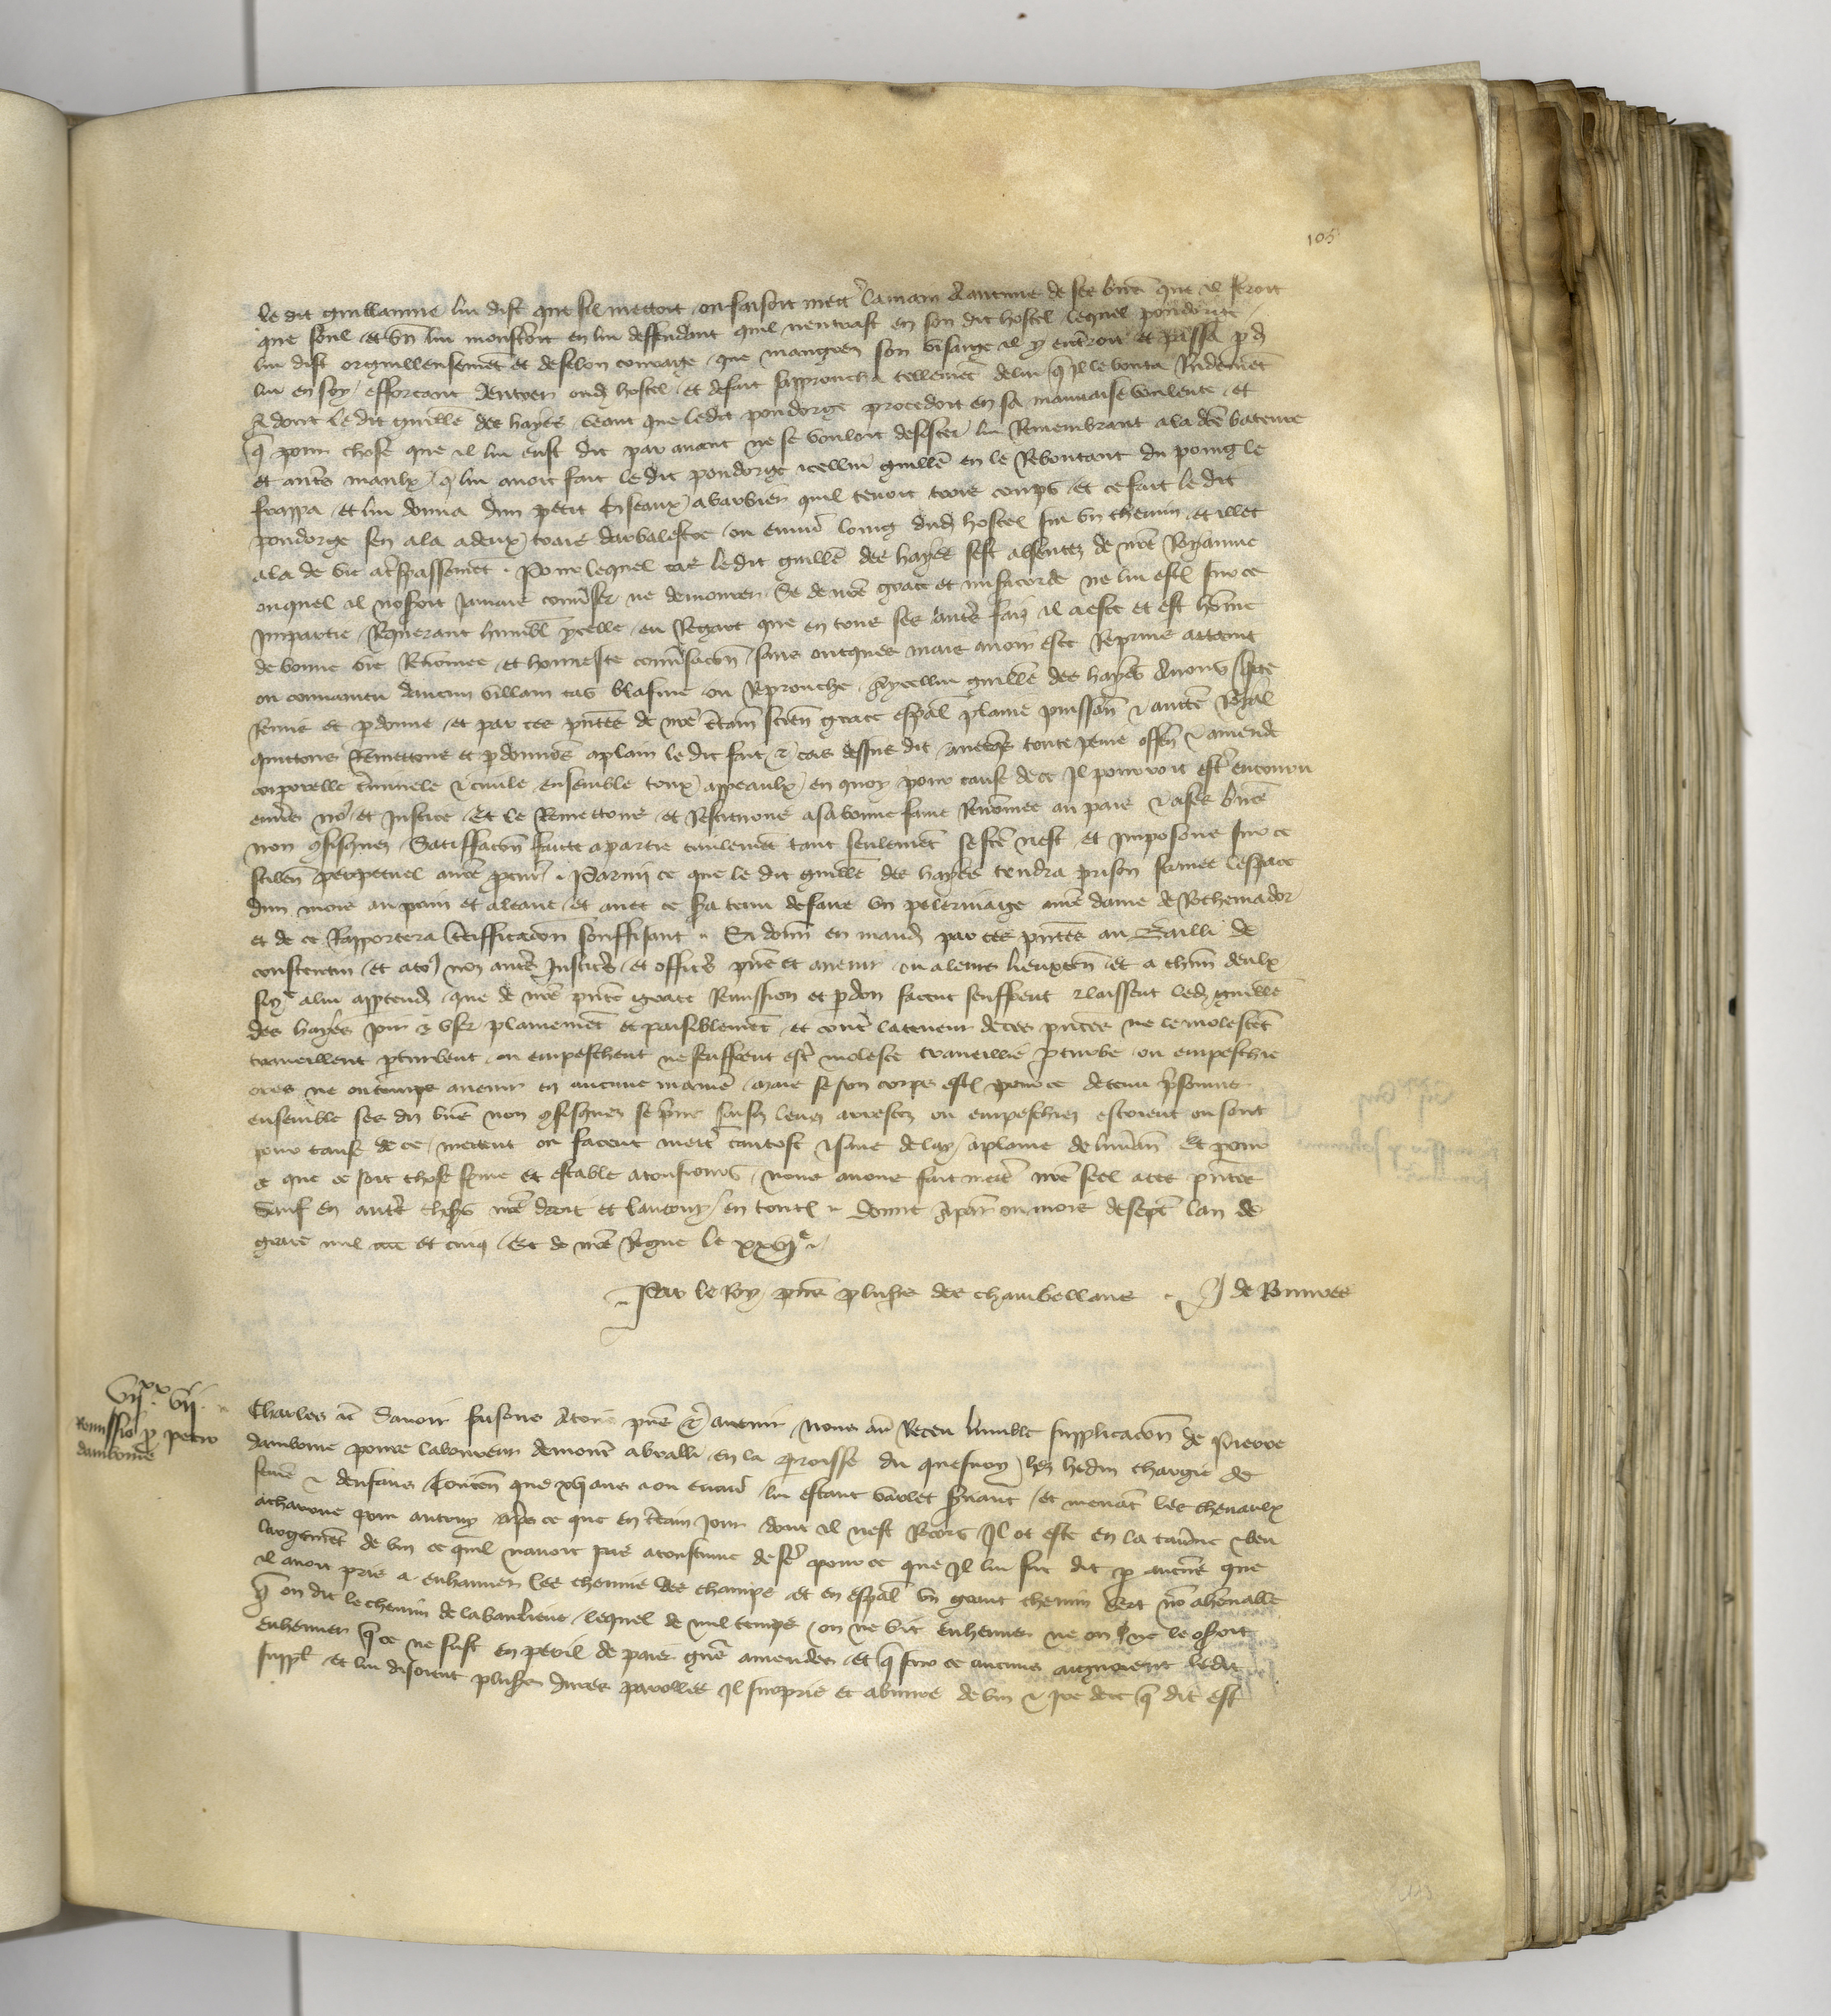 105
le dit guillaume lui dist que sil mettoit ou faisoit mettr la main a aucune de ses brebis que il feroit
que foul et lui monstroit en lui deffendant quil nentrast en son dit hostel lequel pondorge
lui dist orguilleusemēt et de felon couraige que maugres son visaige il y entreroit et passa pd
lui en soy efforcant dentrer oud hostel et de fait sapproucha tellemēt de lui q il le bouta Rudemēt
Et dont le dit guillē des hayes veant que ledit pondorge procedoit en sa mauvaise voulente et
q pour chose que il lui eust dit par avant ne se vouloit desister lui Remembrant a la dce bateure
et autrs maulx q lui avoit fait le dit pondorge icellui guillē en le Reboutant du poing le
frappa et lui donna dun petit ciseaux a barbier quil tenoit trois coups et ce fait le dit
pondorge sen ala a deux trais darbalestre ou environ loing dud hostel sur un chemin et illec
ala de vie a trespassement . Pour lequel cas le dit guillē des hayes sest absentez de nre Royaume
ouquel il noseroit jamais converser ne demourer se de nre grace et misericorde ne lui estoit sur ce
impartie Requerant humblt ycelle eu Regart que en tous ses autrs fais il a este et est homme
de bonne vie Renōmee et honneste conversacōn sans oncques mais avoir este Reprins attaint
ou convaincu daucun villain cas blasme ou Reprouche A ycellui guillē des hayes Avons quicte
Remis et pdonne et par ces pntes de nre ctain scien grace espal plaine puissan & auctē Royal
quittons Remettons et pdonnons a plain le dit fait & cas dessus dit avecqs toute peine offen & amende
corporelle criminele & civile ensemble tous appeaulx en quoy pour cause de ce il pourroit estr encouru
envers no et justice Et le Remettons et Restituons a sa bonne fame Renōmee au pais & a ses biens
non cōfisquez Satisfacōn faicte a partie civilemēt tant seulemēt se fce nest et imposons sur ce
scilen perpetuel a nre pcur . Parmi ce que le dit guillē des hayes tendra prison fermee lespace
dun mois au pain et a leaue et avec ce sera tenu de faire un pelerinaige a nre dame de Rochemador
et de ce Rapportera certifficacōn souffisant . Si donn en mand par ces pntes au Bailli de
constentin et a to noz autrs justicrs et officrs pns et avenir ou a leurs lieuxten et a chun deulx
si cōe a lui apptend que de nre pnte grace Remission et pdon facent seuffrent & laissent led guillē
des hayes joir & user plainemēt et paisiblemēt et contr la teneur de ces pntes ne le molestēt
traveillent pturbent ou empeschent ne seuffrent estr moleste traveillie pturbe ou empeschie
ores ne ou temps avenir en aucune manire mais se son corps estoit pour ce detenu prisonnier
ensemble ses diz biens non cōfisquez se prins saisiz levez arrestez ou empeschiez estoient ou sont
pour cause de ce mettent ou facent mettr tantost & sans delay a plaine delivran Et pour
ce que ce soit chose ferme et estable a tousiours nous avons fait mettr nre seel a ces pntes
Sauf en autrs choses nre droit et lautruy en toutes . Donne a Paris ou mois de sept lan de
grace mil cccc et cinq Et de nre Regne le xxvj e
Par le Roy pns plusrs des chambellans . J de Rouvres
vii xx vii .
Remissio p petro
dambomē
Charles &c Savoir faisons A tous pns & avenir nous av Receu lumble supplicacōn de Pierre
dambome povre laboureur demourant a bralli en la proisse du quesnoy lez hedin chargie de
femē & denfans Contenāt que xvj ans a ou environ lui estant varlet servant et menāt les chevaulx
a charrue pour autruy Aps ce que en ctain jour dont il nest Recors il ot este en la taverne & beu
largemēt de vin ce quil navoit pas acoustume de fere pour ce que il lui fut dit p aucuns que
il avoit pris a enhanner les chemins des champs et en espal un grant chemin vert nō ahennable
q on dit le chemin de la banliene lequel de mil temps on ne vit enhenner ne on ne le osoit
enhenner q ce ne fust en peril de paier grosse amendes et q sur ce aucuns arguoient ledit
suppl et lui disoient plusrs dures parolles il surpris et abuvre de vin & ire de ce q dit est